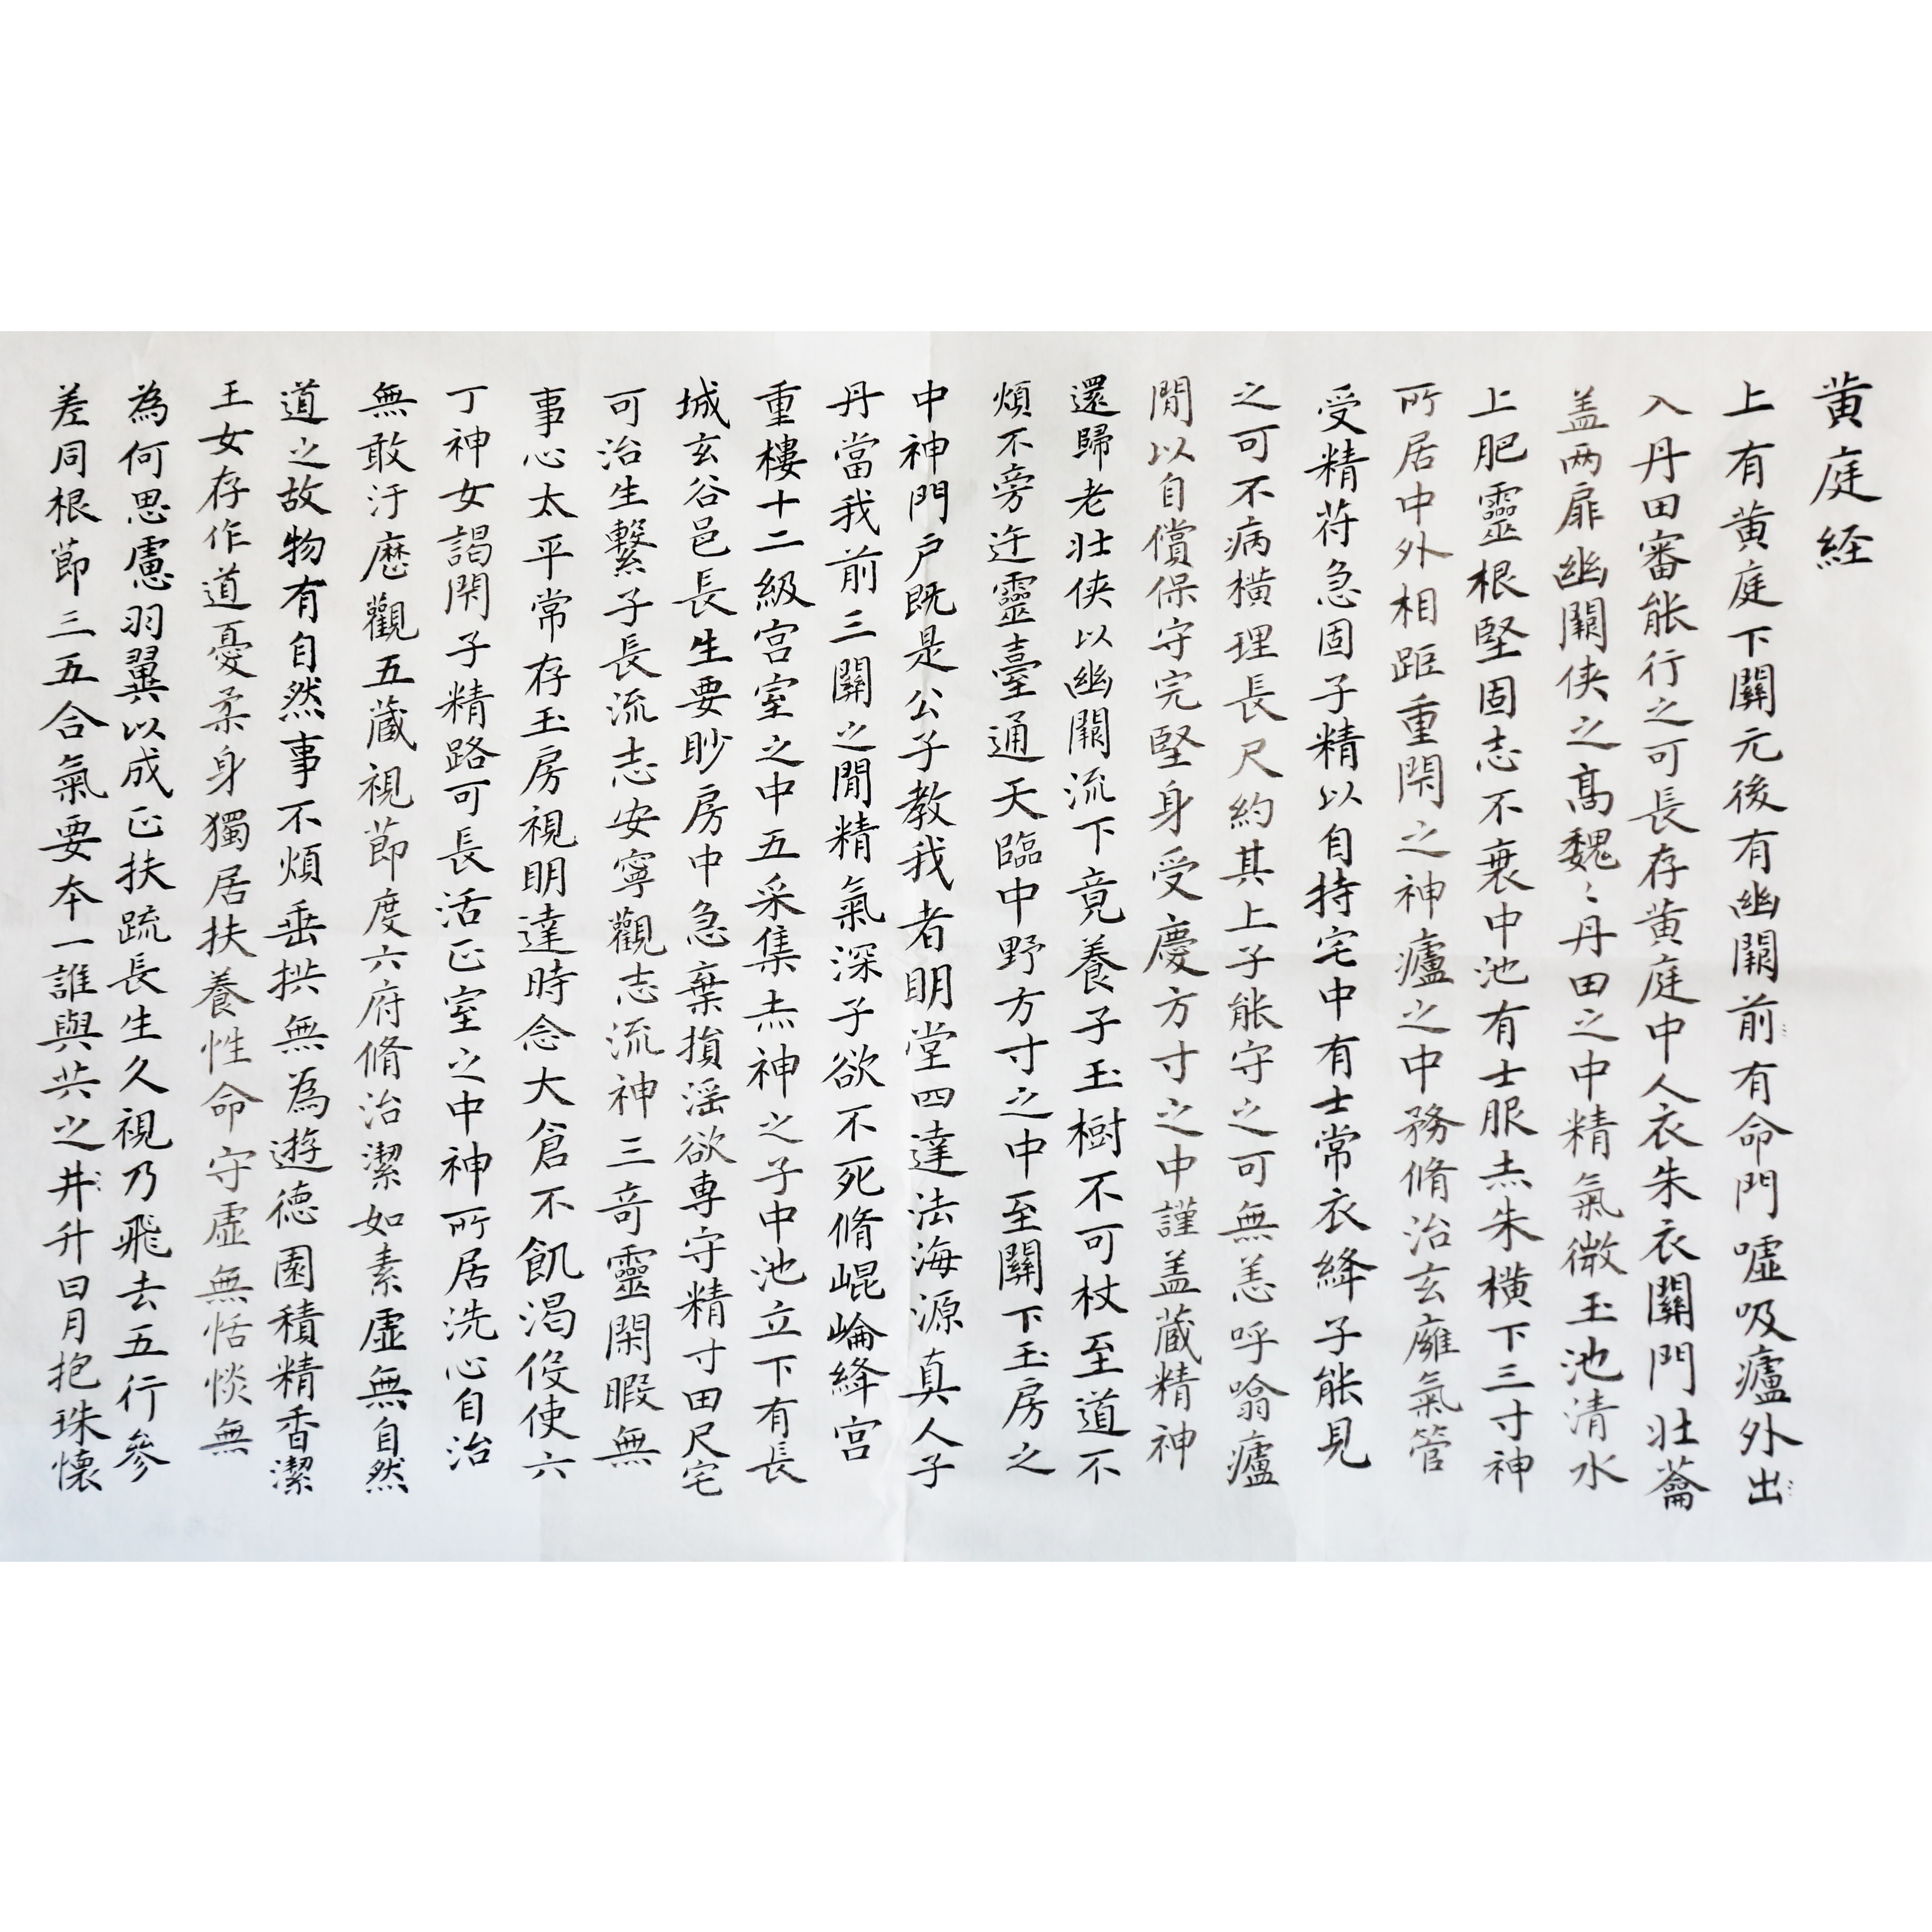 黄庭経
上有黄庭下關元後有幽闕前有命門噓吸廬外出
入丹田審能行之可長存黄庭中人衣朱衣關門壮蘥
盖两扉幽闕侠之髙魏〻丹田之中精氣微玉池清水
上肥靈根堅固志不衰中池有士服赤朱横下三寸神
所居中外相距重閇之神廬之中務脩治玄廱氣管
受精苻急固子精以自持宅中有士常衣絳子能見
之可不病横理長尺約其上子能守之可無恙呼噏廬
閒以自償保守完堅身受慶方寸之中謹盖蔵精神
還歸老壮侠以幽闕流下竟養子玉樹不可杖至道不
煩不旁迕靈臺通天臨中野方寸之中至關下玉房之
中神門户既是公子教我者明堂四達法海源真人子
丹當我前三關之閒精氣深子欲不死脩崐崘絳宫
重樓十二級宫室之中五采集赤神之子中池立下有長
城玄谷邑長生要眇房中急棄捐淫欲専守精寸田尺宅
可治生繫子長流志安寧觀志流神三竒靈閑暇無
事心太平常存玉房視明達時念大倉不飢渇伇使六
丁神女謁閇子精路可長活正室之中神所居洗心自治
無敢汙歷觀五蔵視節度六府脩治潔如素虚無自然
道之故物有自然事不煩垂拱無為遊徳園積精香潔
王女存作道憂柔身獨居扶養性命守虚無恬惔無
為何思慮羽翼以成正扶疏長生久視乃飛去五行參
差同根節三五合氣要本一誰與共之井升日月抱珠懐